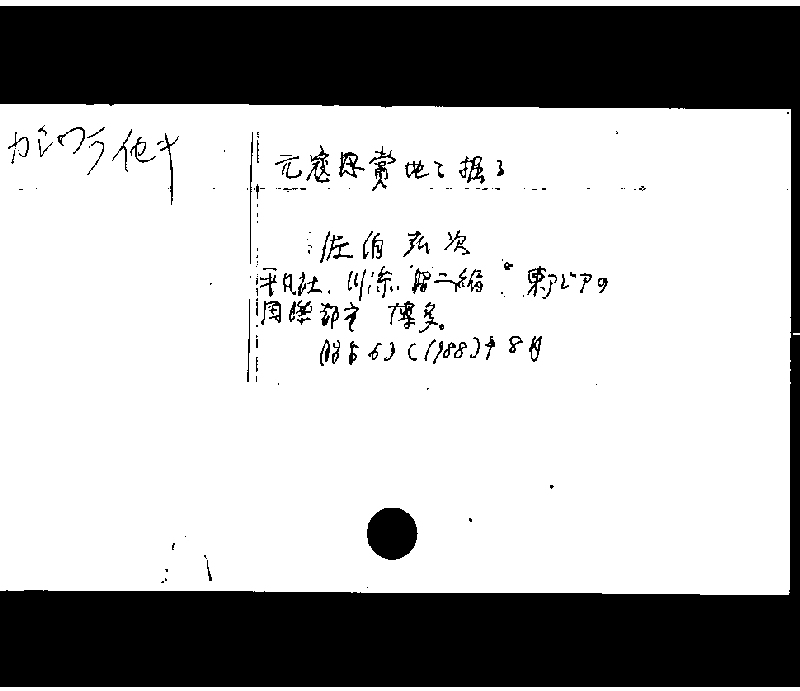 カシワラ他キ
元寇恩賞地を掘る
佐伯弘次
平凡社、川添昭二編『東アジアの
国際都市 博多』
昭和63(1988)年8月